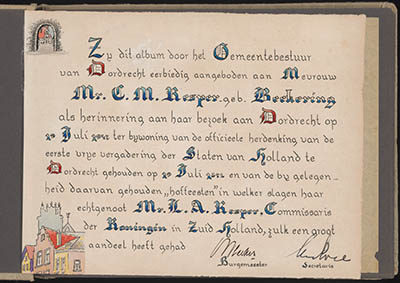 Zy dit album door het Gemeentebestuur
van Dordrecht eerbiedig aangeboden aan Mevrouw
Mr. C. M. Kesper geb. Beekering
als herinnering aan haar bezoek aan Dordrecht op
Juli ter bywoning van de officieele herdenking van de
eerste vrye vergadering der Staten van Holland te
Dordrecht gehouden op Juli en van de by gelegen-
heid daarvan gehouden „hoffeesten" in welker slagen haar
echtgenoot Mr. L. A. Kesper, Commissaris
der Koningin in Zuid Holland, zulk een groot
aandeel heeft gehad
Burgemeester Secretaris